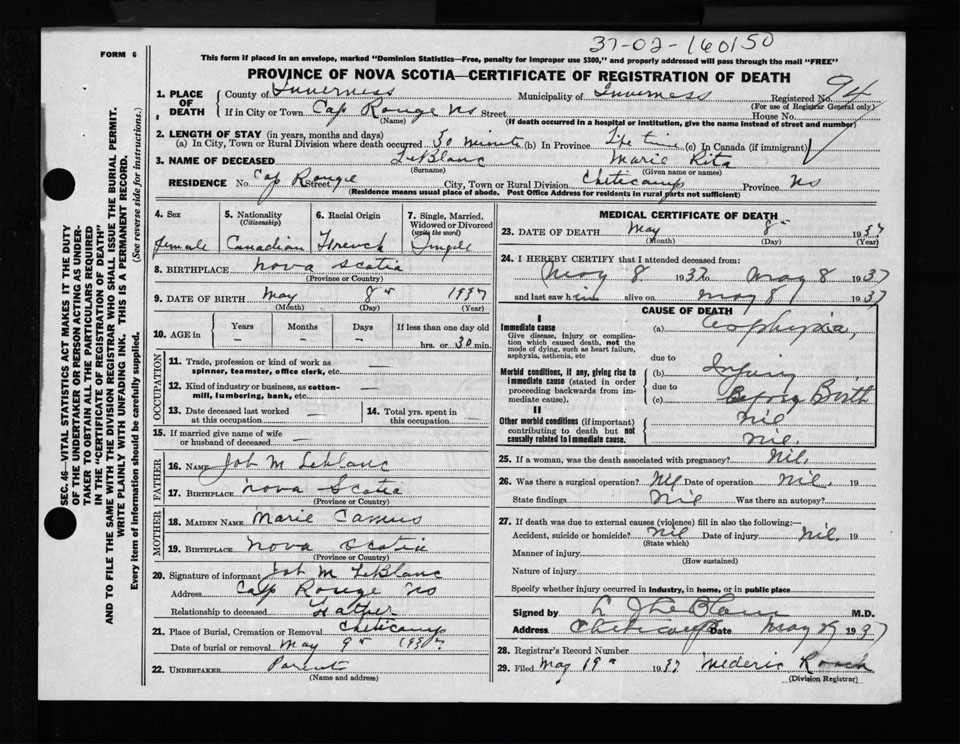 37-02-160150
FORM 6
This form if placed in an envelope, marked "Dominion Statistics—Free, penalty for improper use $300," and properly addressed will pass through the mail "FREE"
PROVINCE OF NOVA SCOTIA—CERTIFICATE OF REGISTRATION OF DEATH
94
1. PLACE OF DEATH County of Inverness Municipality of Inverness Registered No.
(For use of Registrar General only)
If in City or Town Cap Rouge NS Street House No.
(Name) (If death occurred in a hospital or institution, give the name instead of street and number)
2. LENGTH OF STAY (in years, months and days)
(a) In City, Town or Rural Division where death occurred 30 minute (b) In Province Life time (c) In Canada (if immigrant)
3. NAME OF DECEASED LeBlanc Marie Rita
(Surname) (Given name or names)
RESIDENCE No. Cap Rouge Street City, Town or Rural Division Cheticamp Province NS
(Residence means usual place of abode. Post Office Address for residents in rural parts not sufficient)
4. Sex 5. Nationality 6. Racial Origin 7. Single, Married,
(Citizenship) Widowed or Divorced
(write the word)
female Canadian French Single
8. BIRTHPLACE Nova Scotia
(Province or Country)
9. DATE OF BIRTH May 8 1937
(Month) (Day) (Year)
10. AGE in Years Months Days If less than one day old
— — — hrs. or 30 min.
OCCUPATION
11. Trade, profession or kind of work as
spinner, teamster, office clerk, etc. —
12. Kind of industry or business, as cotton-
mill, lumbering, bank, etc. —
13. Date deceased last worked 14. Total yrs. spent in
at this occupation — this occupation —
15. If married give name of wife
or husband of deceased —
FATHER
16. NAME Job M Leblanc
17. BIRTHPLACE Nova Scotia
(Province or Country)
MOTHER
18. MAIDEN NAME Marie Camus
19. BIRTHPLACE Nova Scotia
(Province or Country)
20. Signature of informant Job M LeBlanc
Address Cap Rouge NS
Relationship to deceased Father
21. Place of Burial, Cremation or Removal Cheticamp
Date of burial or removal May 9 1937
22. UNDERTAKER Parents
(Name and address)
MEDICAL CERTIFICATE OF DEATH
23. DATE OF DEATH May 8 1937
(Month) (Day) (Year)
24. I HEREBY CERTIFY that I attended deceased from:
May 8 1937 to May 8 1937
and last saw h im alive on May 8 1937
CAUSE OF DEATH
I
Immediate cause (a) Asphyxia,
Give disease, injury or complication
which caused death, not the
mode of dying, such as heart failure,
asphyxia, asthenia, etc due to
Morbid conditions, if any, giving rise to (b) Injury
immediate cause (stated in order due to
proceeding backwards from immediate cause). (c) Birth
II
Other morbid conditions (if important) nil
contributing to death but not
causally related to immediate cause. nil.
25. If a woman, was the death associated with pregnancy? nil.
26. Was there a surgical operation? Nil Date of operation nil. 19
State findings Nil Was there an autopsy?
27. If death was due to external causes (violence) fill in also the following:—
Accident, suicide or homicide? nil Date of injury nil. 19
(State which)
Manner of injury
(How sustained)
Nature of injury
Specify whether injury occurred in industry, in home, or in public place
Signed by M.D.
Address Cheticamp Date May 1937
28. Registrar's Record Number
29. Filed May 19 1937 Mederic Roach
(Division Registrar)
SEC. 46—VITAL STATISTICS ACT MAKES IT THE DUTY
OF THE UNDERTAKER OR PERSON ACTING AS UNDER-
TAKER TO OBTAIN ALL THE PARTICULARS REQUIRED
IN THE "CERTIFICATE OF REGISTRATION OF DEATH"
AND TO FILE THE SAME WITH THE DIVISION REGISTRAR WHO SHALL ISSUE THE BURIAL PERMIT.
WRITE PLAINLY WITH UNFADING INK. THIS IS A PERMANENT RECORD.
Every item of information should be carefully supplied. (See reverse side for instructions.)